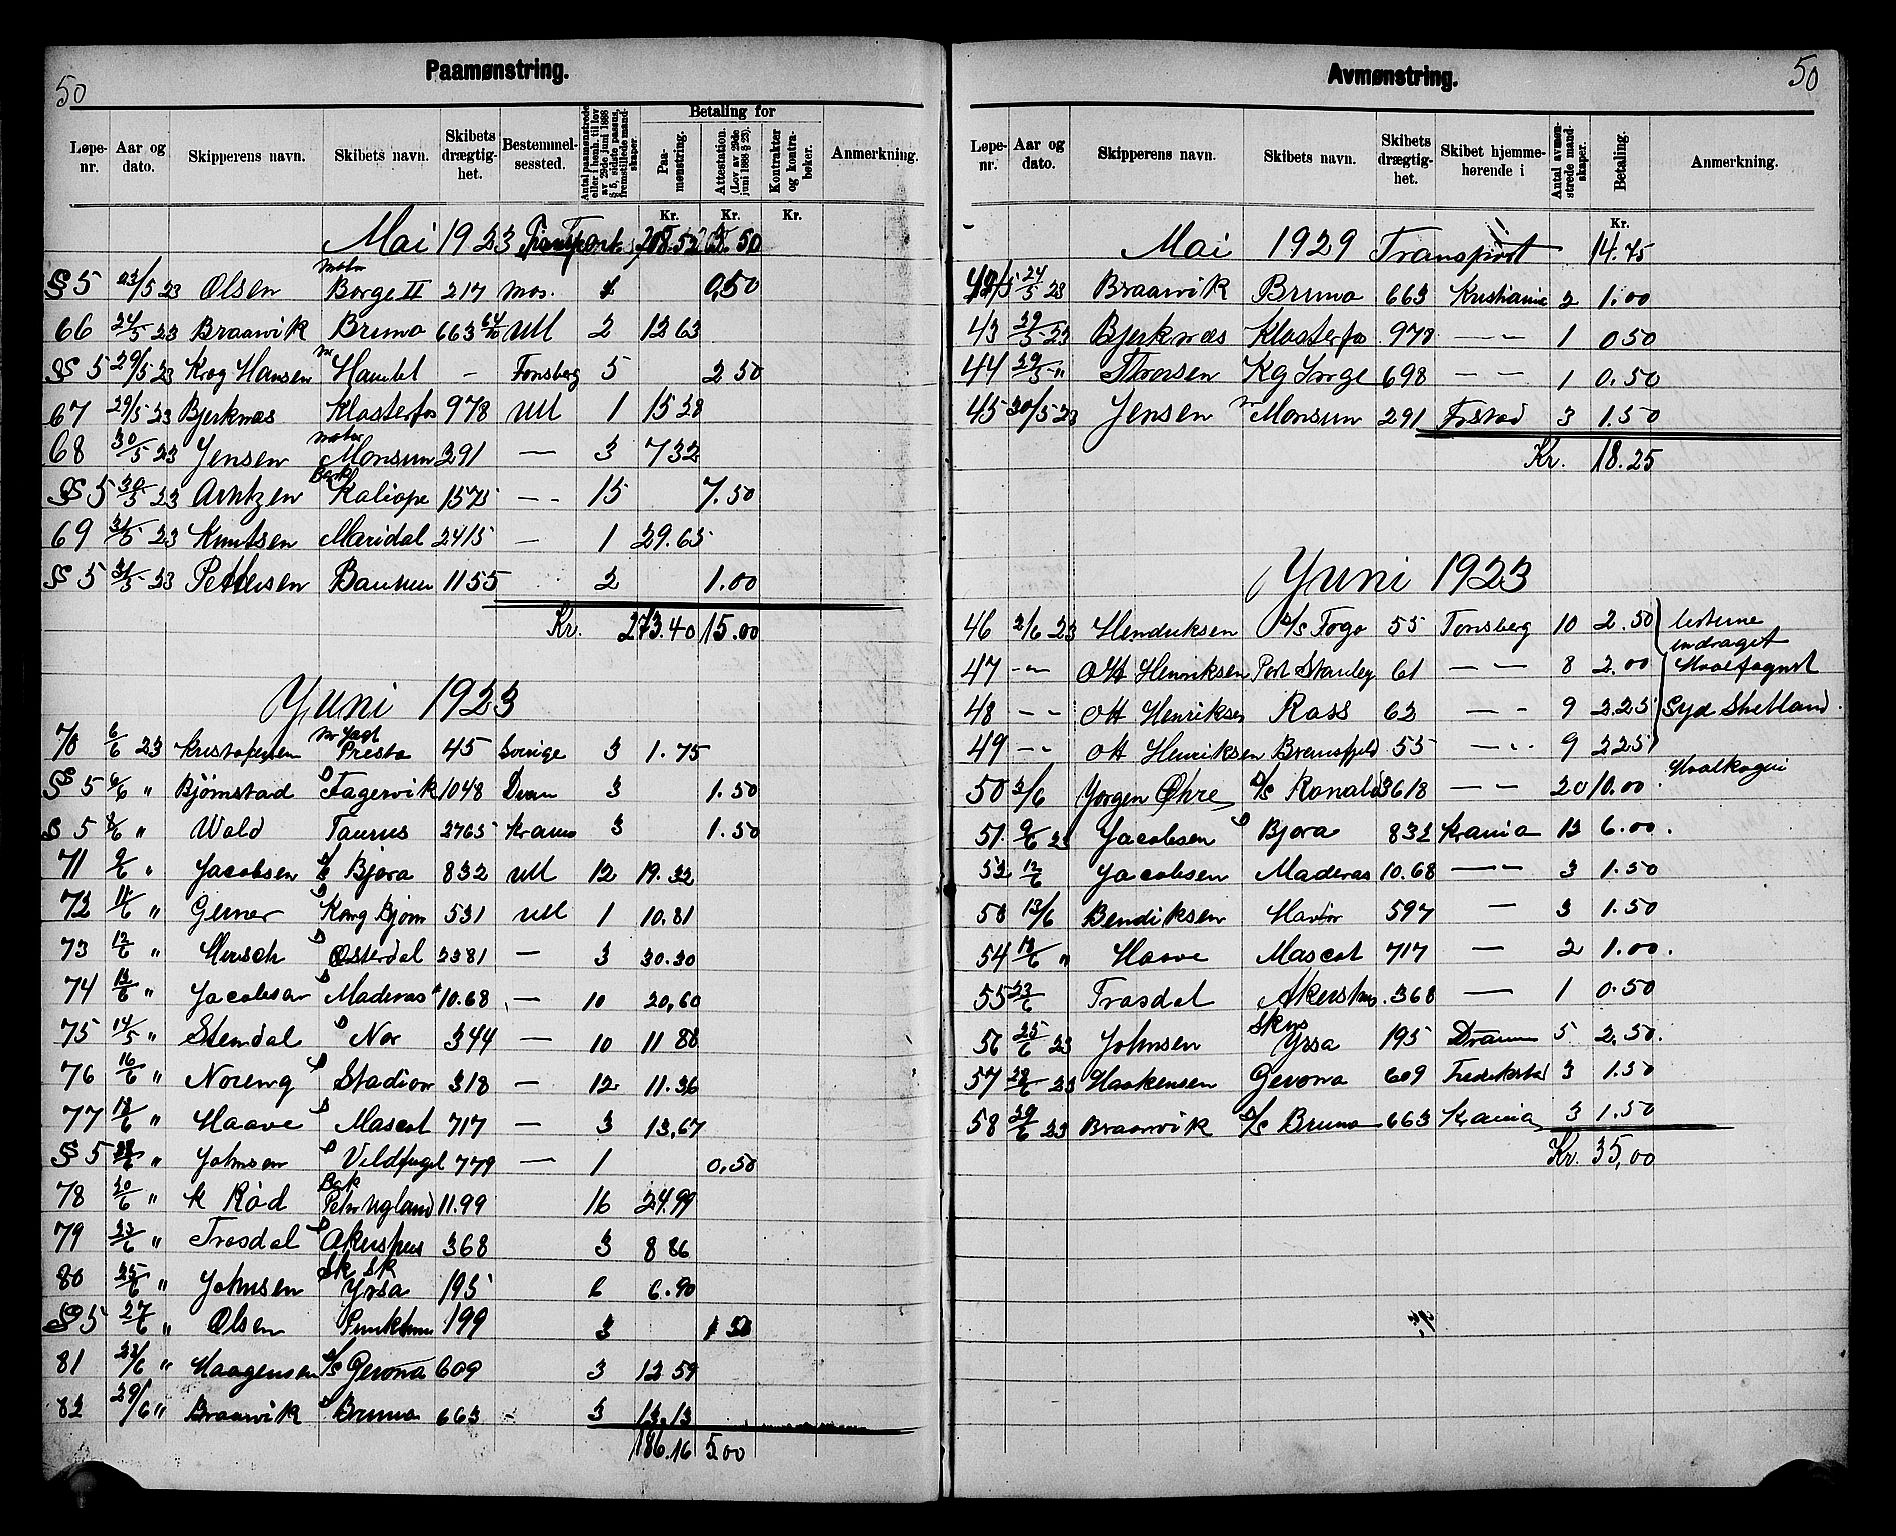 50
Paamønstring.
Løpe-nr. Aar og dato. Skipperens navn. Skibets navn. Skibets drægtighet. Bestemmelsessted. Antal paamønstrede eller i henh. til lov av 29de juni 1888 § 5, sidste passus, fremstillede mandskaper. Betaling for Paamønstring. Attestation. (Lov av 29de juni 1888 § 23). Kontrakter og kontrabøker. Anmerkning.
Kr. Kr. Kr.
Mai 1923 Transport 208.52
§ 5 23/5 23 Olsen motor Borge II 217 mos. 1 0,50
66 24/5 23 Braarvik Bruno 663 Utl 2 12 63
§ 5 29/5 23 Krog Hansen m Hamlet - Tønsberg 5 2 50
67 29/5 23 Bjerknæs Klosterfos 978 Utl 1 15 28
68 30/5 23 Jensen motor Monsun 291 — 3 7 32
§ 5 30/5 23 Arntzen Bark Kaliope 1575 — 15 7.50
69 31/5 23 Knutsen Maridal 2415 — 1 29.65
§ 5 31/5 23 Pettersen 1155 2 1.00
Kr. 273.40 15.00
Juni 1923
70 6/6 23 Kristofersen Presto 45 Sverige 3 1.75
§ 5 6/6 " Bjørnstad Fagervik 1048 Dram 3 1.50
§ 5 8/6 " Wold Taurus 2765 3 1.50
71 9/6 " Jacobsen Bjøra 832 Utl 12 19.32
72 11/6 " Gerner Kong Bjørn 531 Utl 1 10.81
73 12/6 " Mensch Østerdal 2381 — 3 30.30
74 13/6 " Jacobsen Maderas 10.68 — 10 20,60
75 14/5 " Stendal Nor 344 — 10 11 88
76 16/6 " Noreng Stadion 318 — 12 11.36
77 18/6 " Haave Mascot 717 — 3 13,67
§ 5 " Johnsen Veldfugel 779 — 1 0,50
78 20/6 " K Rød Bark Petr Ugland 11.99 16 24.99
79 23/6 " Trosdal Akershus 368 3 8 86
80 25/6 " Johnsen Sk Yrsa 195 6 6.90
§ 5 27/6 " Olsen Punktum 199 3 1 50
81 28/6 " Haagensen D/S Gerona 609 3 12 59
82 29/6 " Braarvik Bruno 663 - 3 13.13
186.16 5.00
Avmønstring.
50
Løpe-nr. Aar og dato. Skipperens navn. Skibets navn. Skibets drægtighet. Skibet hjemmehørende i Antal avmønstrede mandskaper. Betaling. Anmerkning.
Kr.
Mai 1929 Transport 14.75
42 24/5 23 Braarvik Bruno 663 Kristiania 2 1.00
43 29/5 23 Bjerknæs Klosterfos 978 — 1 0 50
44 29/5 " Thorsen Kg Inge 698 — 1 0.50
45 30/5 23 Jensen m Monsun 291 3 1.50
Kr. 18.25
Juni 1923
46 2/6 23 Hendriksen D/S Fogo 55 Tønsberg 10 2.50 listerne
indraget
47 — Ott Henriksen Port Stanley 61 — 8 2.00 Hvalfagnst
48 — Ott Henriksen Ross 62 — 9 2.25 Syd Shetland.
49 — Ott Henriksen 55 — 9 2.25
50 2/6 Jørgen Øhre D/S Ronald 3618 — 20 10.00 Hvalkogeri
51. 9/6 23 Jacobsen Bjøra 832 Krania 12 6.00.
52 12/6 Jacobsen Maderas 10.68 — 3 1.50
53 13/6 Bendiksen Havør 597 — 3 1.50
54 18/6 " Haave Mascot 717 — 2 1.00.
55 23/6 Trosdal Akershus 368 — 1 0.50
56 25/6 23 Johnsen Yrsa 195 Dramm 5 2.50.
57 28/6 23 Haakensen Gerona 609 Fredrikstad 3 1.50
58 29/6 23 Braarvik D/S Bruno 663 Krania 3 1.50
Kr. 35,00